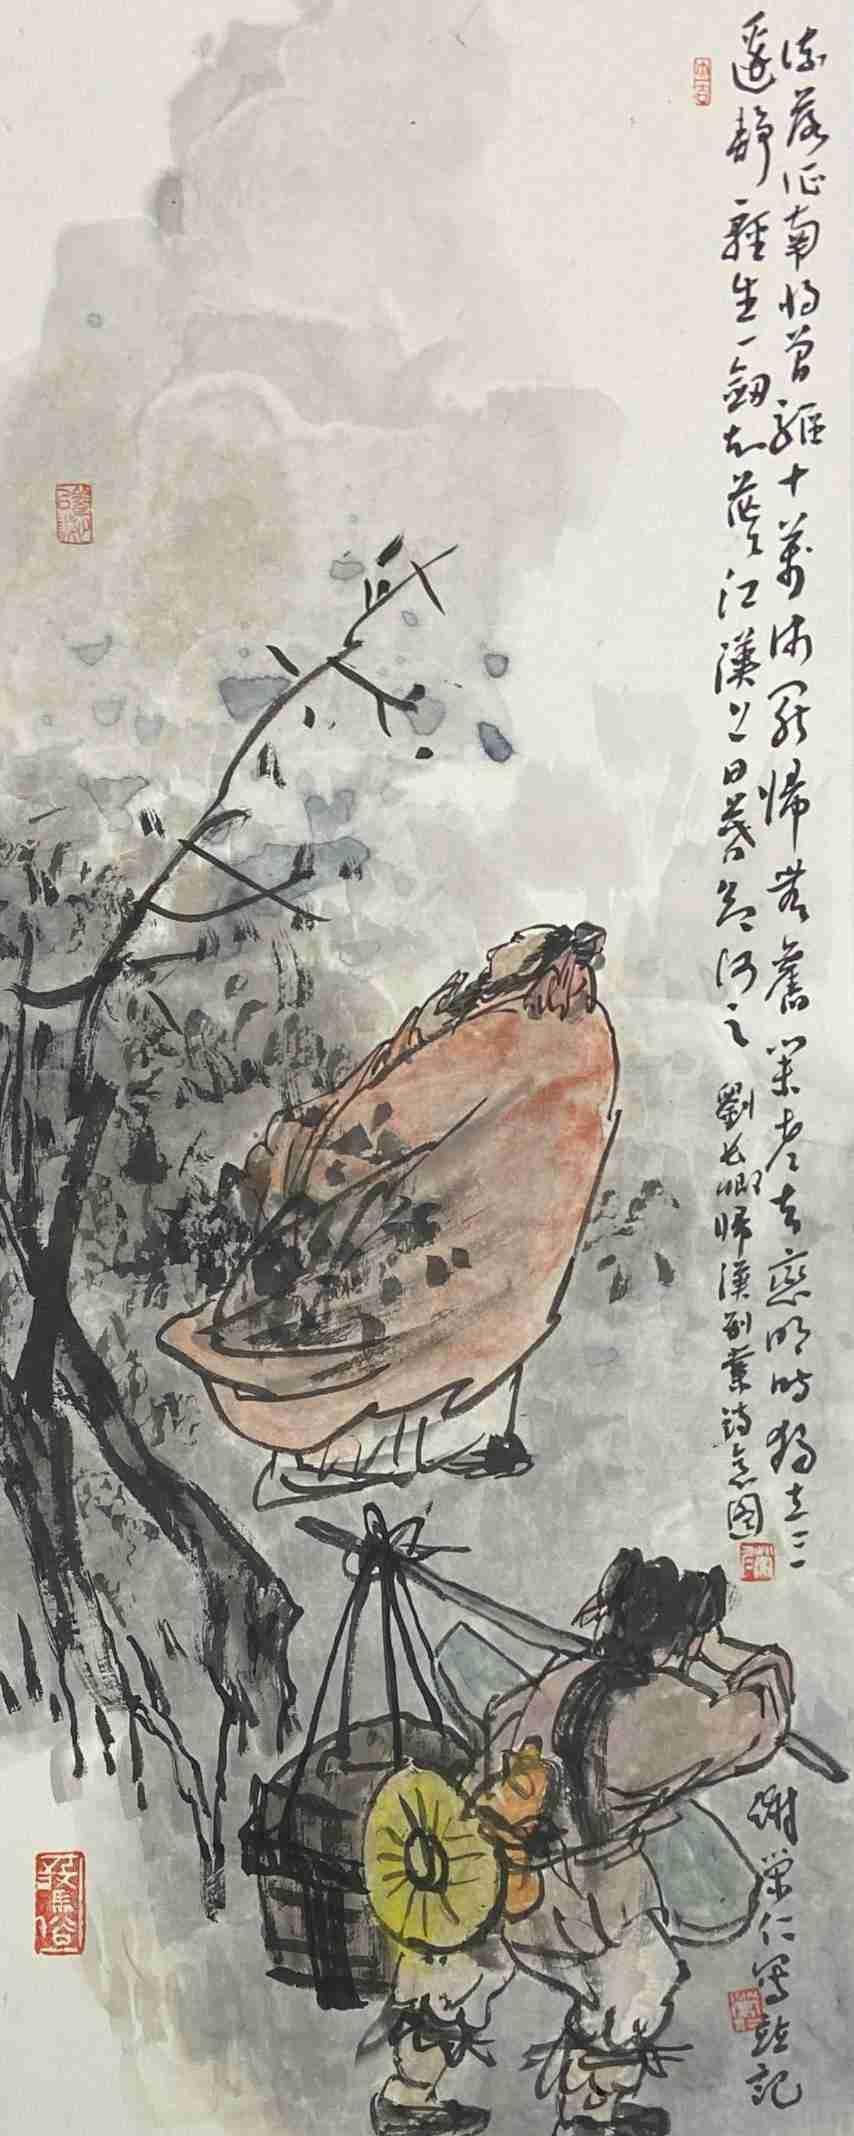 流落征南将曾驅十萬师罷歸無舊業老去戀明時獨立三
邊靜輕生一劍知茫茫江漢上日暮欲何之 劉長卿歸漢別業詩意圖
謝榮仁寫並記